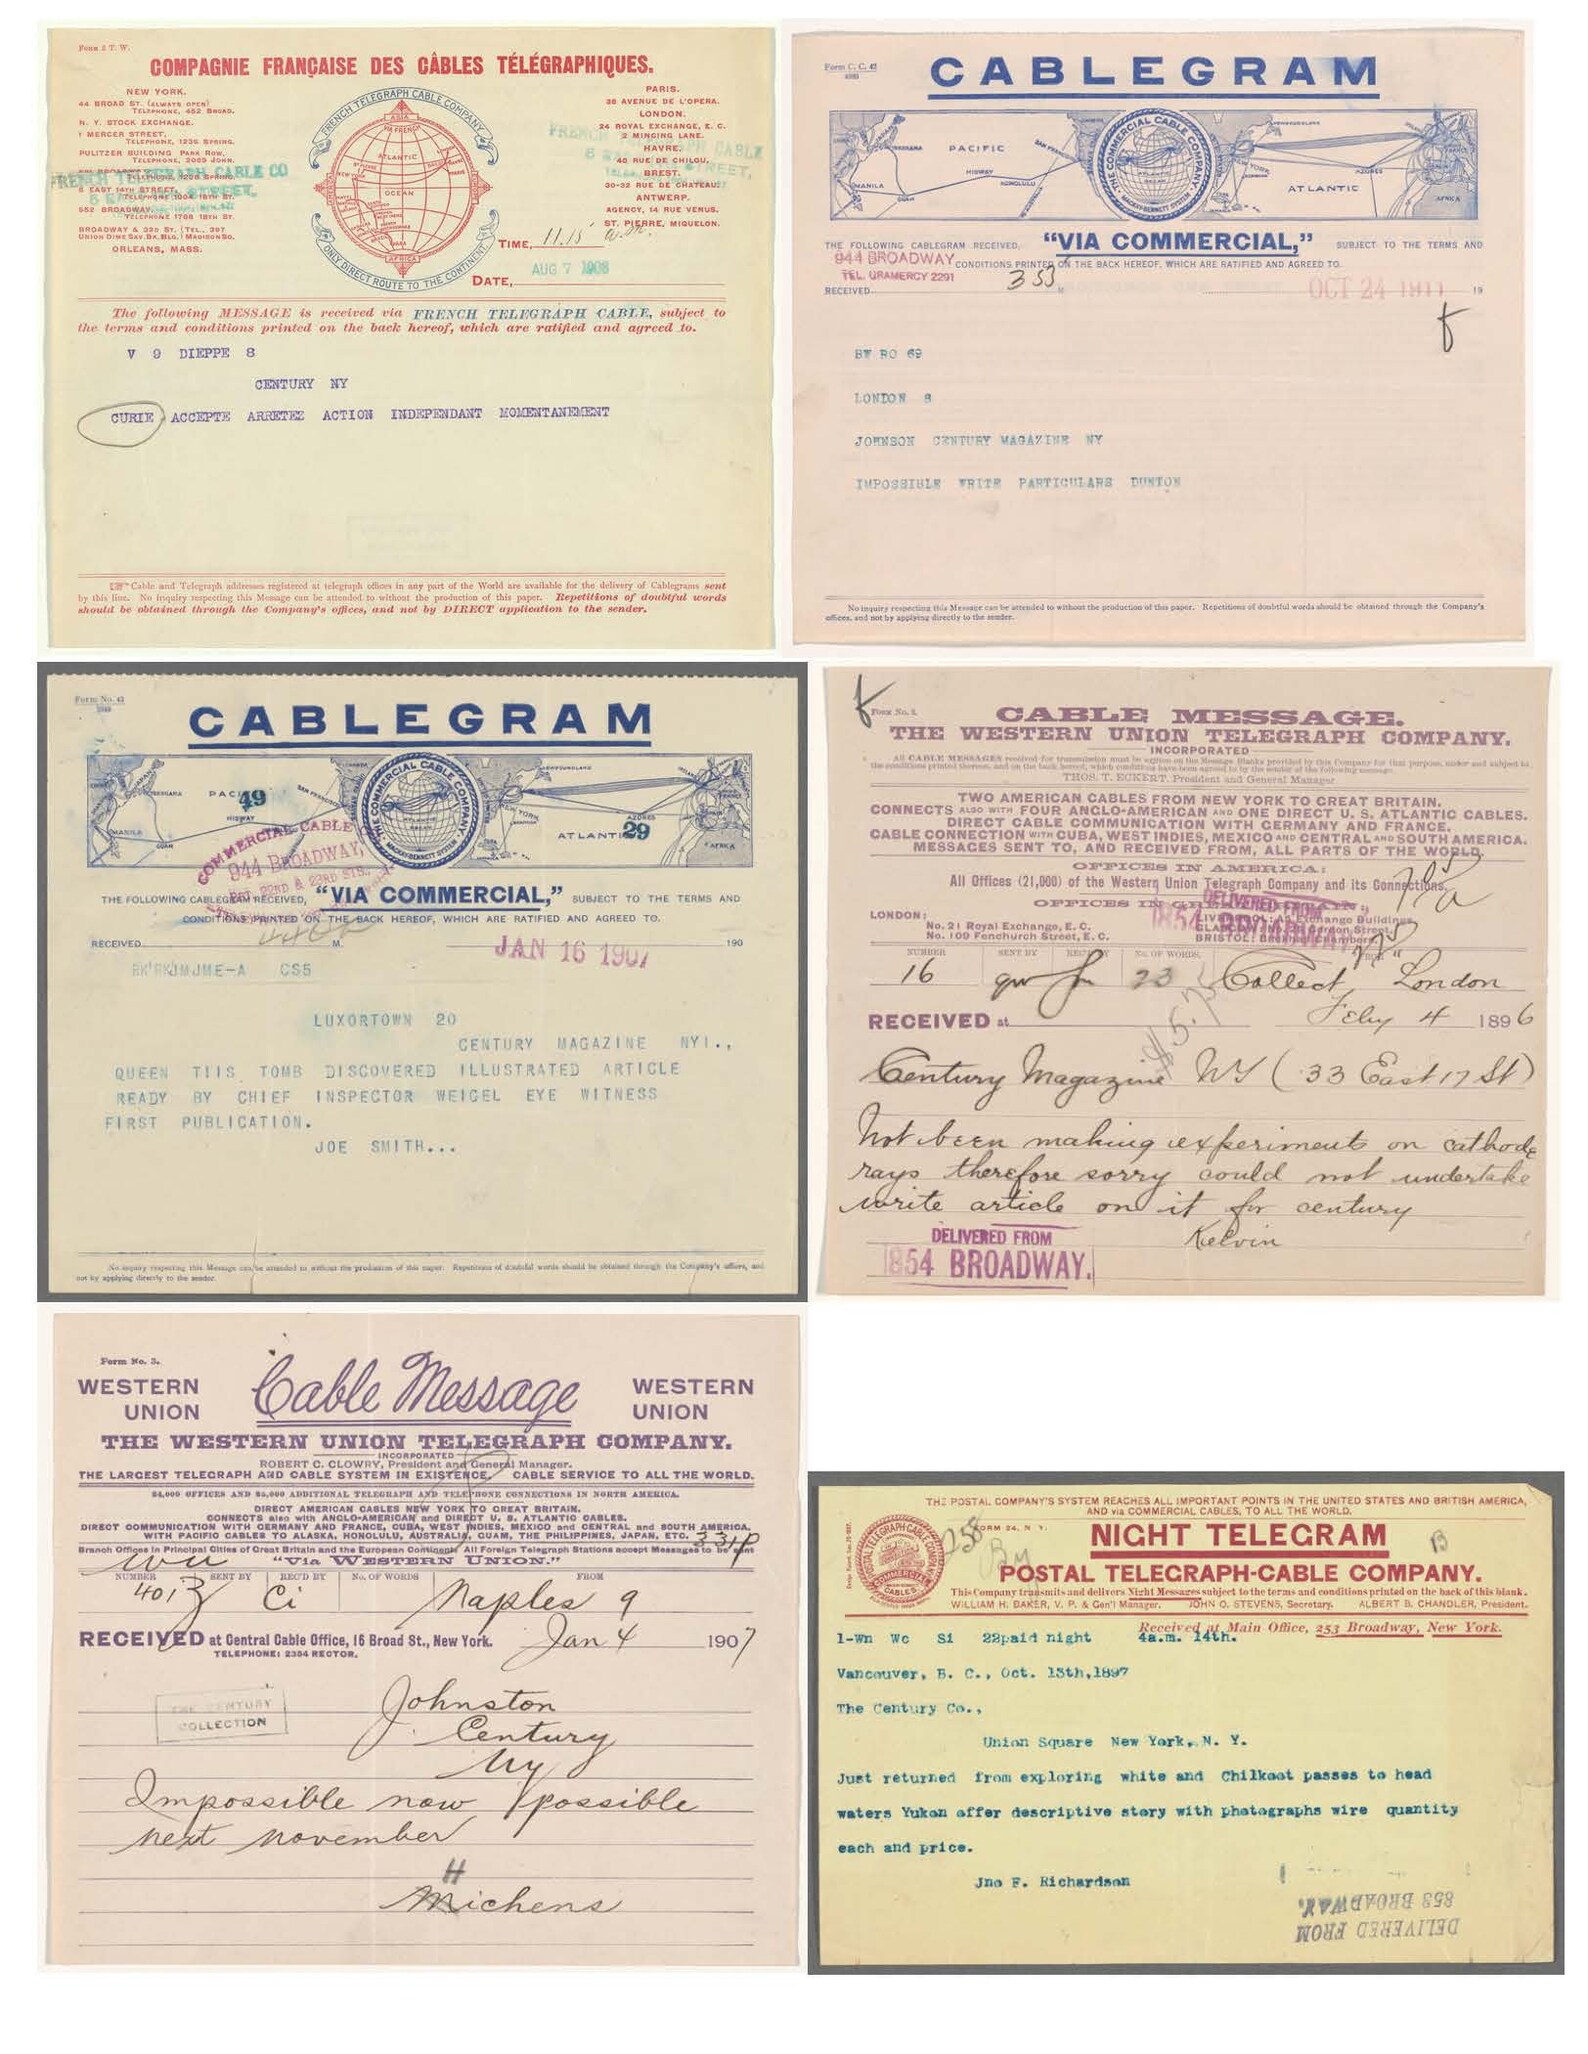 Form 2 T. W.
COMPAGNIE FRANÇAISE DES CÂBLES TÉLÉGRAPHIQUES.
NEW YORK.
44 BROAD ST. (ALWAYS OPEN)
TELEPHONE, 452 BROAD.
N. Y. STOCK EXCHANGE.
1 MERCER STREET,
TELEPHONE, 1236 SPRING.
PULITZER BUILDING PARK ROW,
TELEPHONE, 2065 JOHN.
FRENCH TELEGRAPH CABLE CO
6 EAST 14TH STREET,
552 BROADWAY,
TELEPHONE 1768 18TH ST.
BROADWAY & 32D ST. (TEL., 397
UNION DIME SAV. BK. BLG.) MADISON SQ.
ORLEANS, MASS.
FRENCH TELEGRAPH CABLE COMPANY
ASIA
ATLANTIC
OCEAN
AFRICA
ONLY DIRECT ROUTE TO THE CONTINENT.
PARIS.
38 AVENUE DE L'OPERA.
LONDON.
24 ROYAL EXCHANGE, E. C.
2 MINCING LANE.
HAVRE.
46 RUE DE CHILOU.
BREST.
30-32 RUE DE CHATEAU.
ANTWERP.
AGENCY, 14 RUE VENUS.
ST. PIERRE, MIQUELON.
TIME, 11.15 a.m.
DATE, AUG 7 1908
The following MESSAGE is received via FRENCH TELEGRAPH CABLE, subject to
the terms and conditions printed on the back hereof, which are ratified and agreed to.
V 9 DIEPPE 8
CENTURY NY
CURIE ACCEPTE ARRETEZ ACTION INDEPENDANT MOMENTANEMENT
Cable and Telegraph addresses registered at telegraph offices in any part of the World are available for the delivery of Cablegrams sent
by this line. No inquiry respecting this Message can be attended to without the production of this paper. Repetitions of doubtful words
should be obtained through the Company's offices, and not by DIRECT application to the sender.
Form C. C. 42
CABLEGRAM
PACIFIC
MANILA
GUAM
MIDWAY
HONOLULU
THE COMMERCIAL CABLE COMPANY
MACKAY-BENNETT SYSTEM
NEW YORK
NEWFOUNDLAND
ATLANTIC
AZORES
AFRICA
THE FOLLOWING CABLEGRAM RECEIVED, "VIA COMMERCIAL," SUBJECT TO THE TERMS AND
CONDITIONS PRINTED ON THE BACK HEREOF, WHICH ARE RATIFIED AND AGREED TO.
944 BROADWAY
TEL. GRAMERCY 2291
RECEIVED 3 53 M OCT 24 1911 19
BW RO 69
LONDON 8
JOHNSON CENTURY MAGAZINE NY
IMPOSSIBLE WRITE PARTICULARS DUNTON
No inquiry respecting this Message can be attended to without the production of this paper. Repetitions of doubtful words should be obtained through the Company's
offices, and not by applying directly to the sender.
Form No. 42
CABLEGRAM
49
MIDWAY
GUAM
THE COMMERCIAL CABLE COMPANY
MACKAY-BENNETT SYSTEM
NEWFOUNDLAND
AZORES
ATLANTIC
29
AFRICA
COMMERCIAL CABLE
944 BROADWAY,
BET. 22ND & 23RD STS.,
THE FOLLOWING CABLEGRAM RECEIVED, "VIA COMMERCIAL," SUBJECT TO THE TERMS AND
CONDITIONS PRINTED ON THE BACK HEREOF, WHICH ARE RATIFIED AND AGREED TO.
RECEIVED M. JAN 16 1907 190
CS5
LUXORTOWN 20
CENTURY MAGAZINE NY1.,
QUEEN TIIS TOMB DISCOVERED ILLUSTRATED ARTICLE
READY BY CHIEF INSPECTOR WEIGEL EYE WITNESS
FIRST PUBLICATION.
JOE SMITH...
No inquiry respecting this Message can be attended to without the production of this paper. Repetitions of doubtful words should be obtained through the Company's offices, and
not by applying directly to the sender.
Form No. 2.
CABLE MESSAGE.
THE WESTERN UNION TELEGRAPH COMPANY.
INCORPORATED
All CABLE MESSAGES received for transmission must be written on the Message Blanks provided by this Company for that purpose, under and subject to
the conditions printed thereon, and on the back hereof, which conditions have been agreed to by the sender of the following message.
THOS. T. ECKERT, President and General Manager
TWO AMERICAN CABLES FROM NEW YORK TO GREAT BRITAIN.
CONNECTS ALSO WITH FOUR ANGLO-AMERICAN AND ONE DIRECT U. S. ATLANTIC CABLES.
DIRECT CABLE COMMUNICATION WITH GERMANY AND FRANCE.
CABLE CONNECTION WITH CUBA, WEST INDIES, MEXICO AND CENTRAL AND SOUTH AMERICA.
MESSAGES SENT TO, AND RECEIVED FROM, ALL PARTS OF THE WORLD.
OFFICES IN AMERICA:
All Offices (21,000) of the Western Union Telegraph Company and its Connections.
LONDON:
No. 21 Royal Exchange, E. C.
No. 100 Fenchurch Street, E. C.
NUMBER SENT BY REC'D BY No. OF WORDS. FROM
16 23 Collect London
RECEIVED at Feby 4 1896
Century Magazine NY (33 East 17 St)
Not been making experiments on cathode
rays therefore sorry could not undertake
write article on it for century
Kelvin
DELIVERED FROM
854 BROADWAY.
Form No. 3.
WESTERN UNION Cable Message WESTERN UNION
THE WESTERN UNION TELEGRAPH COMPANY.
INCORPORATED
ROBERT C. CLOWRY, President and General Manager.
THE LARGEST TELEGRAPH AND CABLE SYSTEM IN EXISTENCE. CABLE SERVICE TO ALL THE WORLD.
24,000 OFFICES AND 25,000 ADDITIONAL TELEGRAPH AND TELEPHONE CONNECTIONS IN NORTH AMERICA.
DIRECT AMERICAN CABLES NEW YORK TO GREAT BRITAIN.
CONNECTS also with ANGLO-AMERICAN and DIRECT U. S. ATLANTIC CABLES.
DIRECT COMMUNICATION WITH GERMANY AND FRANCE, CUBA, WEST INDIES, MEXICO and CENTRAL and SOUTH AMERICA.
WITH PACIFIC CABLES TO ALASKA, HONOLULU, AUSTRALIA, GUAM, THE PHILIPPINES, JAPAN, ETC.
Branch Offices in Principal Cities of Great Britain and the European Continent. All Foreign Telegraph Stations accept Messages to be sent
"Via WESTERN UNION."
NUMBER SENT BY REC'D BY No. OF WORDS FROM
401 Ci Naples 9
RECEIVED at Central Cable Office, 16 Broad St., New York. Jan 4 1907
TELEPHONE: 2354 RECTOR.
THE CENTURY
COLLECTION
Johnston
Century
Ny
Impossible now possible
next november
H
Michens
THE POSTAL COMPANY'S SYSTEM REACHES ALL IMPORTANT POINTS IN THE UNITED STATES AND BRITISH AMERICA,
AND via COMMERCIAL CABLES, TO ALL THE WORLD.
FORM 24, N. Y.
NIGHT TELEGRAM
B
POSTAL TELEGRAPH-CABLE COMPANY.
This Company transmits and delivers Night Messages subject to the terms and conditions printed on the back of this blank.
WILLIAM H. BAKER, V. P. & Gen'l Manager. JOHN O. STEVENS, Secretary. ALBERT B. CHANDLER, President.
Received at Main Office, 253 Broadway, New York.
1-Wn Wc Si 22paid night 4a.m. 14th.
Vancouver, B. C., Oct. 13th,1897
The Century Co.,
Union Square New York, N. Y.
Just returned from exploring white and Chilkoot passes to head
waters Yukon offer descriptive story with photographs wire quantity
each and price.
Jno F. Richardson
DELIVERED FROM
853 BROADWAY.